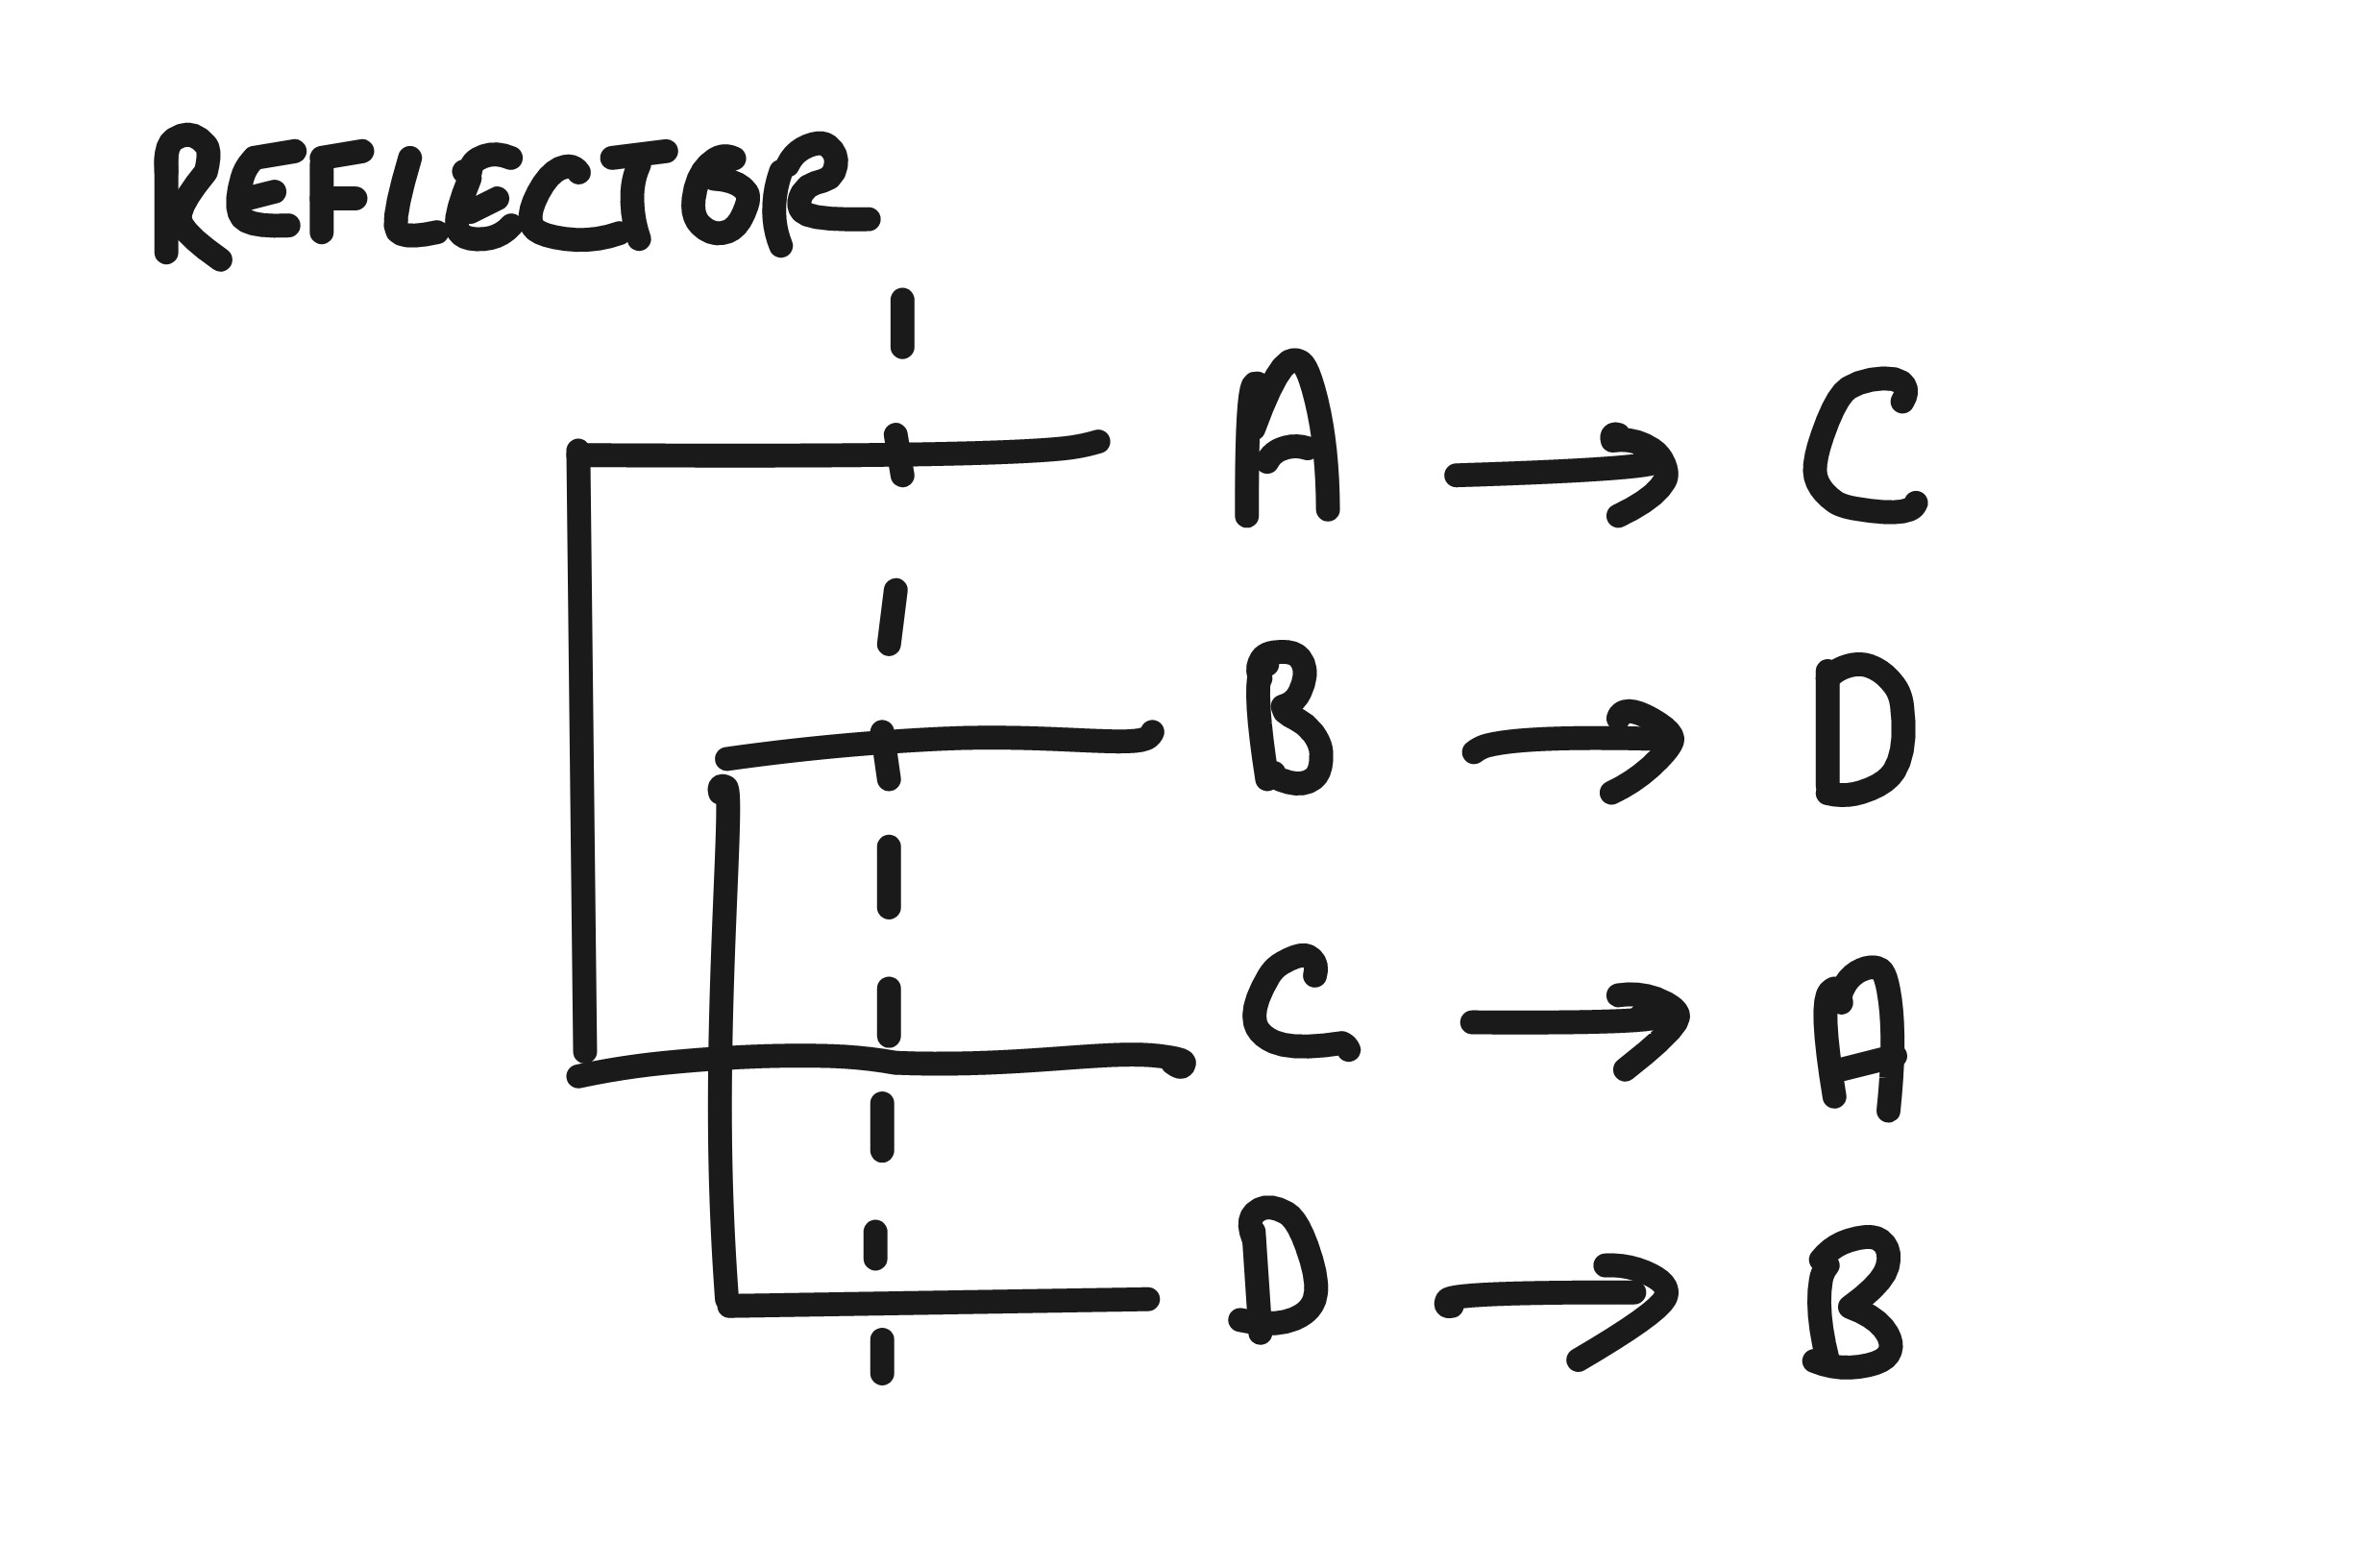 REFLECTOR
A → C
B → D
C → A
D → B